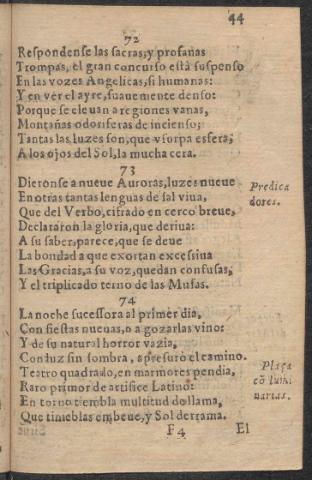 44
72
Respondense las sacras, y profanas
Trompas, el gran concurso està suspenso
En las vozes Angelicas, si humanas:
Y en ver el ayre, suauemente denso:
Porque se eleuan a regiones vanas,
Montañas odoriferas de incienso;
Tantas las luzes son, que vsurpa esfera,
A los ojos del Sol, la mucha cera.
73
Dieronse a nueue Auroras, luzes nueue
En otras tantas lenguas de sal viua,
Que del Verbo, cifrado en cerco breue,
Declararon la gloria, que deriua:
A su saber, parece, que se deue
La bondad a que exortan excessiua
Las Gracias, a su voz, quedan confusas,
Y el triplicado terno de las Musas.
Predica
dores.
74
La noche sucessora al primer dia,
Con fiestas nueuas, o a gozarlas vino:
Y de su natural horror vazia,
Con luz sin sombra, apresurò el camino.
Teatro quadrado, en marmores pendia,
Raro primor de artifice Latino:
En torno tiembla multitud de llama,
Que tinieblas embeue, y Sol derrama.
Plaça
cõ lumi
narias.
F 4
El